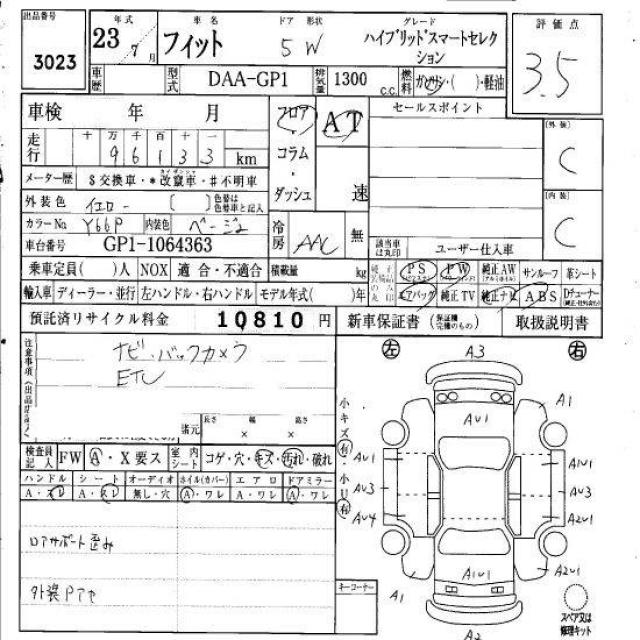 出品番号 3023
年式 23年 7月
車名 フィット
ドア 形状 5 W
グレード ハイブリッドスマートセレクション
評価点 3.5
車歴
型式 DAA-GP1
排気量 1300 c.c.
燃料 ガソリン・( )・軽油
車検 年 月
フロア AT
セールスポイント
走行 十 万 千 百 十 一
9 6 1 3 3 km
コラム・ダッシュ 速
(外装) C
メーター歴 $交換車・*改竄車・#不明車
外装色 イエロー [ ] 色替は色替車と記入
(内装) C
カラーNo Y66P 内装色 ベージュ
冷房 AAC 無
車台番号 GP1-1064363
該当車は丸印 ユーザー仕入車
乗車定員( )人 NOX 適合・不適合 積載量 kg
PS PW 純正AW サンルーフ 革シート
輸入車 ディーラー・並行 左ハンドル・右ハンドル モデル年式( )年
エアバッグ 純正TV 純正ナビ ABS Dチューナー
預託済リサイクル料金 10810 円
新車保証書 (保証欄完備のもの) 取扱説明書
注意事項
ナビ・バックカメラ
ETC
左 A3 右
諸元 長さ 幅 高さ
× ×
小キズ有・小U有
A1
AU1
AU1 A1U1
AU3 AU3
AU4 A2U1
検査員記入 FW A・X要ス 室内シート コゲ・穴・キズ・汚れ・破れ
ハンドル シート オーディオ ホイル(カバー) エアロ ドアミラー
A・スレ A・スレ 無し・穴 A・ワレ A・ワレ A・ワレ
ロアサポート歪み
外装Pアセ
A1U1 A2U1
A1
キーコーナー
A2
スペア又は修理キット